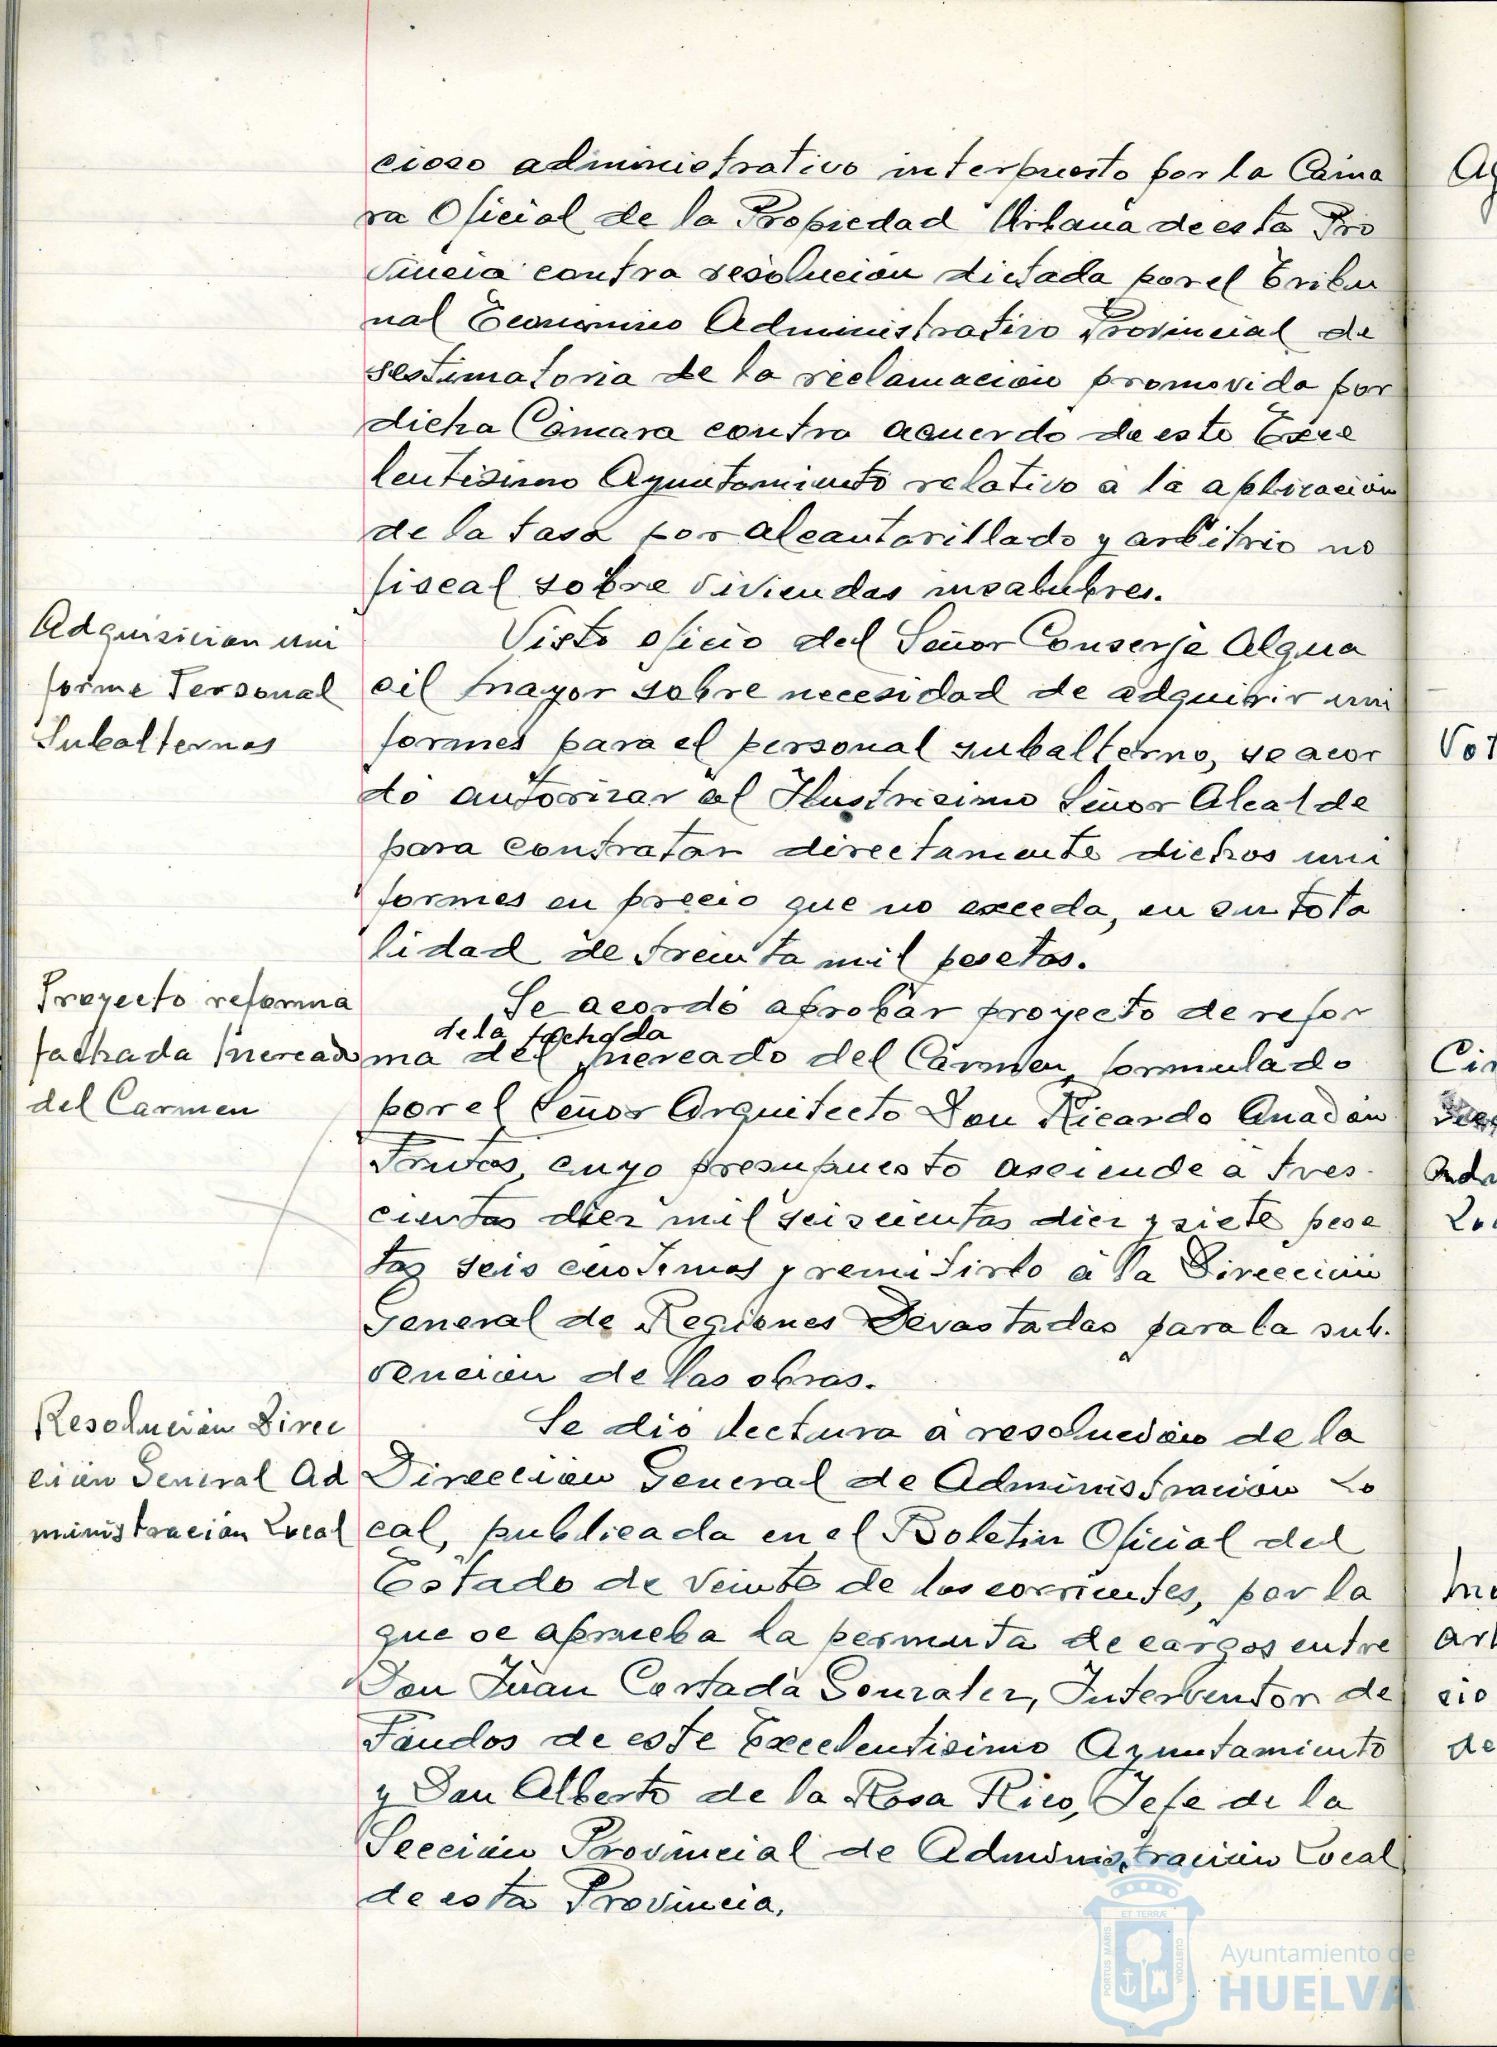 cioso administrativo interpuesto por la Cáma
ra Oficial de la Propiedad Urbana de esta Pro
vincia contra resolución dictada por el Tribu
nal Económico Administrativo Provincial de
sestimatoria de la reclamación promovida por
dicha Cámara contra acuerdo de este Exce
lentísimo Ayuntamiento relativo a la aplicación
de la tasa por alcantarillado y arbitrio no
fiscal sobre viviendas insalubres.
Adquisición uni
forme Personal
Subalternos
Visto oficio del Señor Conserje Algua
cil Mayor sobre necesidad de adquirir uni
formes para el personal subalterno, se acor
dó autorizar al Ilustrísimo Señor Alcalde
para contratar directamente dichos uni
formes en precio que no exceda, en su tota
lidad de treinta mil pesetas.
Proyecto reforma
fachada Mercado
del Carmen
Se acordó aprobar proyecto de refor
de la fachada
ma del Mercado del Carmen, formulado
por el Señor Arquitecto Don Ricardo Anadón
Frutos, cuyo presupuesto asciende a tres
cientas diez mil seiscientas diez y siete pese
tas seis céntimos y remitirlo a la Dirección
General de Regiones Devastadas para la sub-
vención de las obras.
Resolución Direc
ción General Ad
ministración Local
Se dió lectura a resolución de la
Dirección General de Administración Lo
cal, publicada en el Boletín Oficial del
Estado de veinte de los corrientes, por la
que se aprueba la permuta de cargos entre
Don Juan Cortada González, Interventor de
Fondos de este Excelentísimo Ayuntamiento
y Don Alberto de la Rosa Rico, Jefe de la
Sección Provincial de Administración Local
de esta Provincia.
Ayuntamiento de
HUELVA
PORTUS MARIS
ET TERRÆ
CUSTODIA